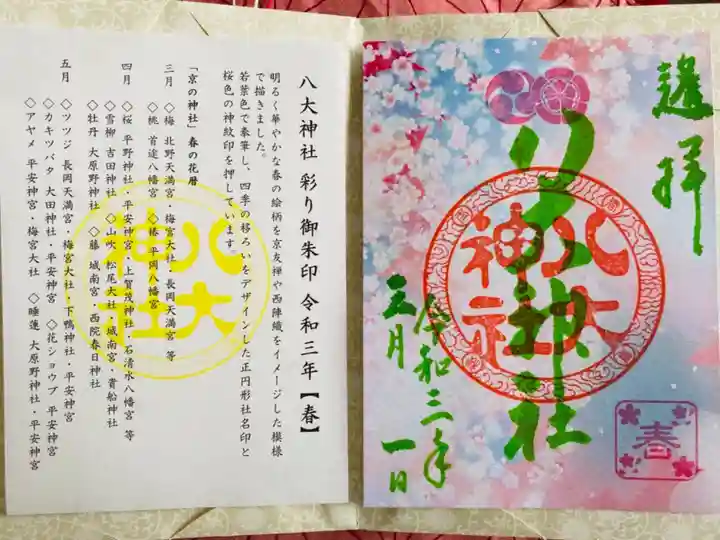 八大神社 彩り御朱印 令和三年【春】
明るく華やかな春の絵柄を京友禅や西陣織をイメージした模様
で描きました。
若葉色で奉筆し、四季の移ろいをデザインした正円形社名印と
桜色の神紋印を押しています。
「京の神社」春の花暦
三月 ◇梅 北野天満宮・梅宮大社・長岡天満宮 等
◇桃 首途八幡宮 ◇椿 平岡八幡宮
四月 ◇桜 平野神社・平安神宮・上賀茂神社・石清水八幡宮 等
◇雪柳 吉田神社 ◇山吹 松尾大社・城南宮・貴船神社
◇牡丹 大原野神社 ◇藤 城南宮・西院春日神社
五月 ◇ツツジ 長岡天満宮・梅宮大社・下鴨神社・平安神宮
◇カキツバタ 大田神社・平安神宮 ◇花ショウブ 平安神宮
◇アヤメ 平安神宮・梅宮大社 ◇睡蓮 大原野神社・平安神宮
八大神社
遥拝
八大神社
八大神社
令和三年
三月一日
春